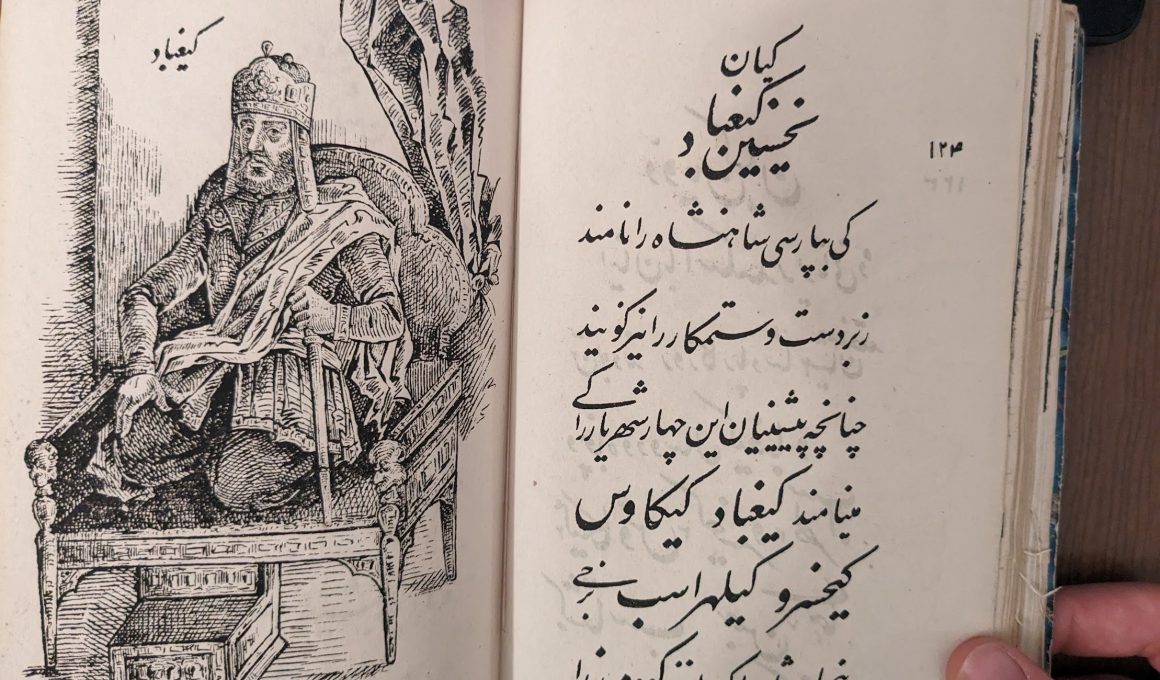 کیغباد
کیان
نخستین کیغباد
۱۲۴
کی بپارسی شاهنشاه را نامند
زبردست و ستمکار را نیز گویند
چنانچه پیشینیان این چهار شهریار را کے
مینامند کیغباد کیکاوس
کیخسرو کیلهراسب برخی